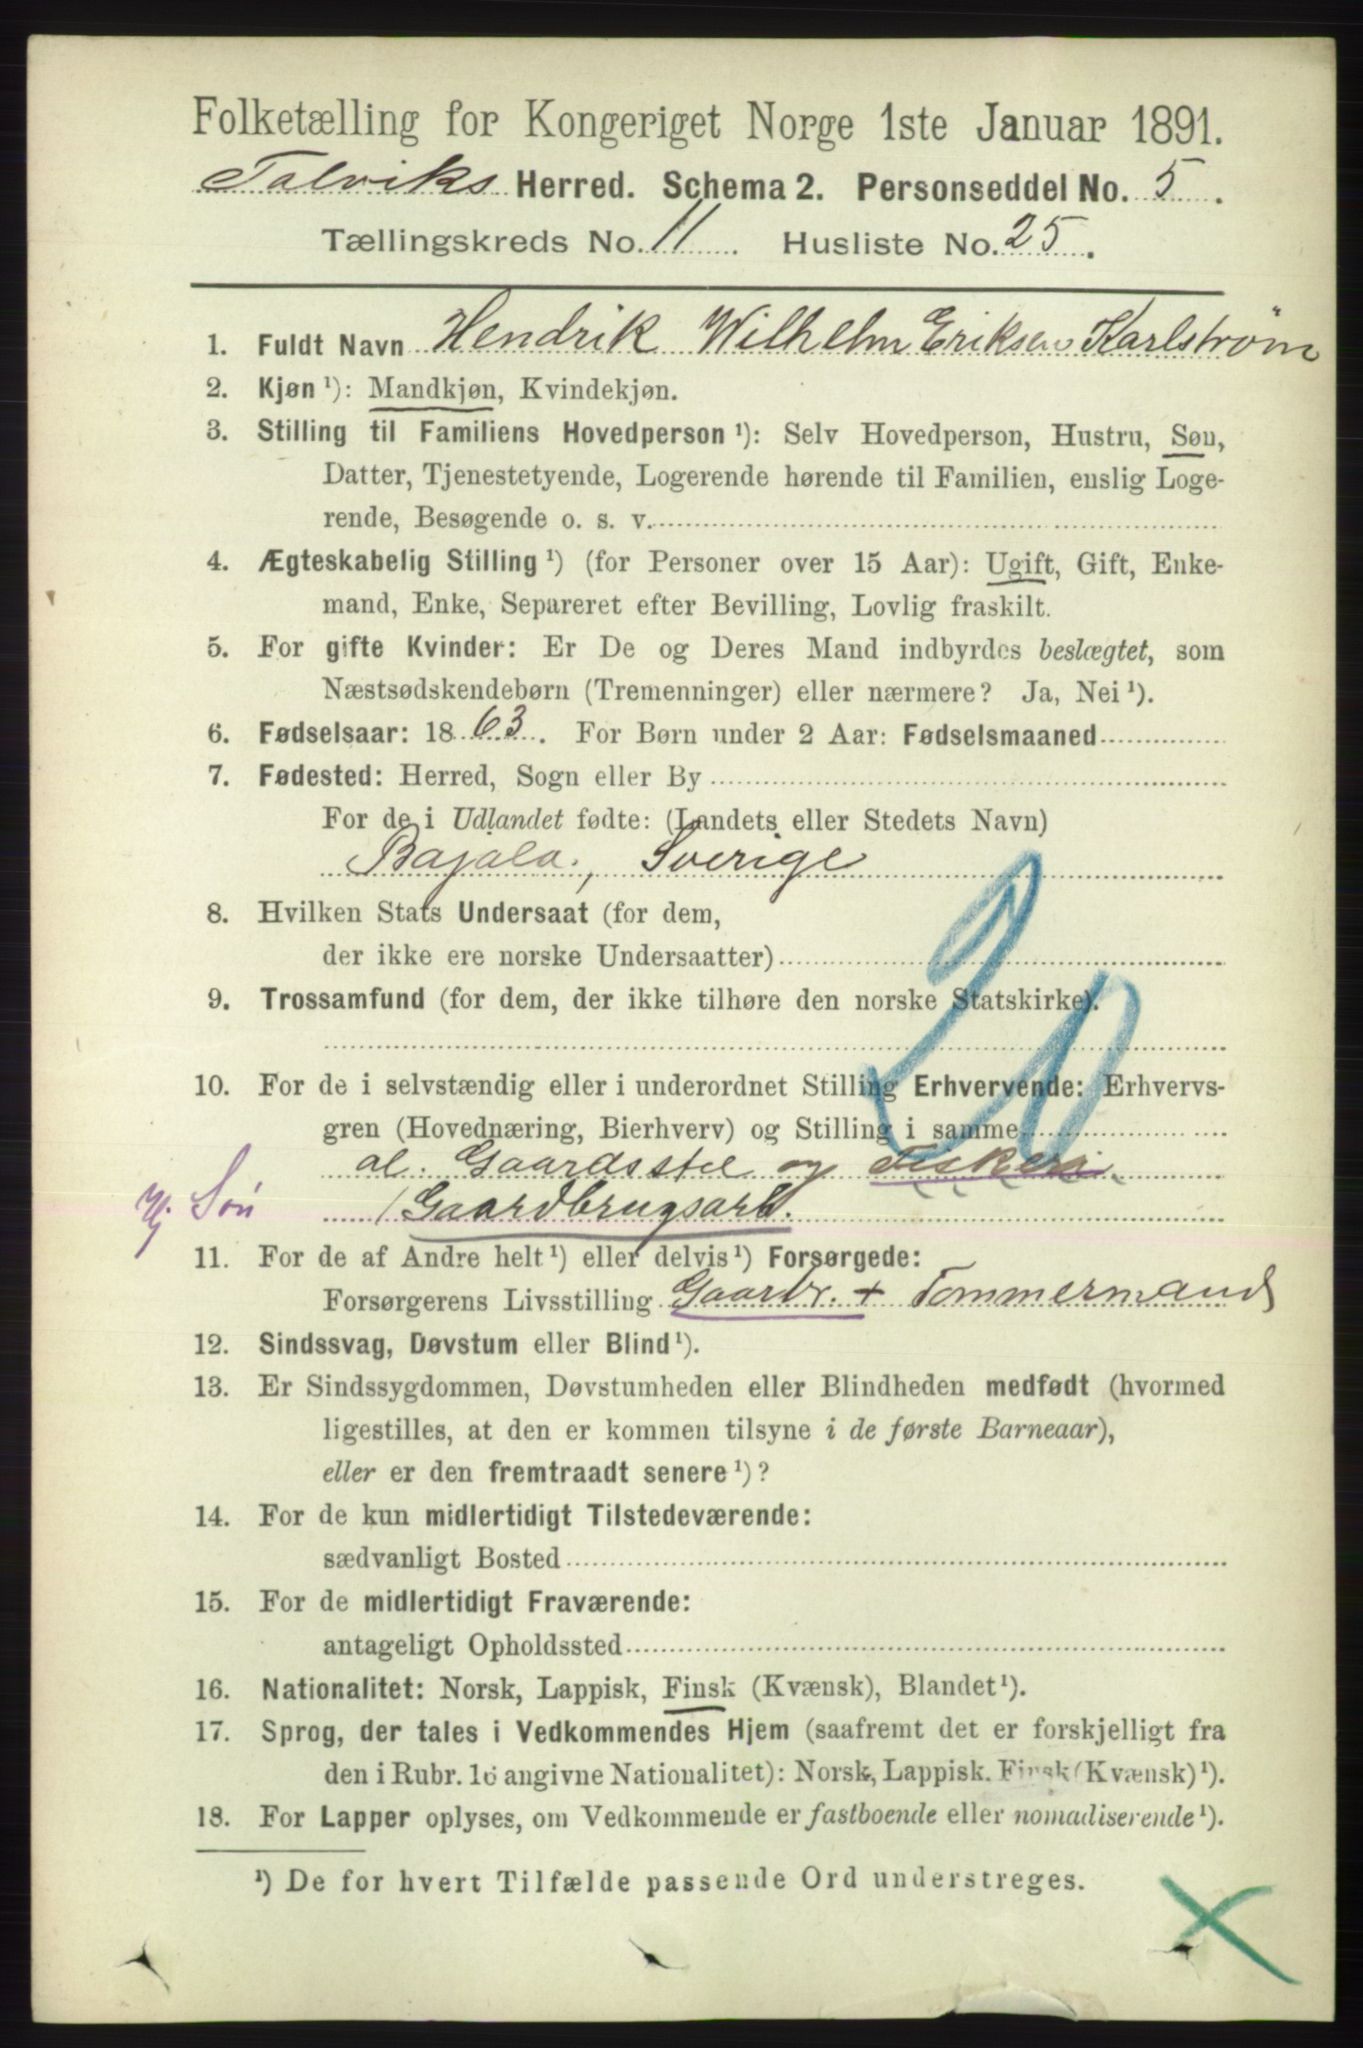 Folketælling for Kongeriget Norge 1ste Januar 1891.
Talviks Herred. Schema 2. Personseddel No. 5.
Tællingskreds No. 11. Husliste No. 25.
1. Fuldt Navn Hendrik Wilhelm Eriksen Karlstrøm
2. Kjøn ¹): Mandkjøn, Kvindekjøn.
3. Stilling til Familiens Hovedperson ¹): Selv Hovedperson, Hustru, Søn,
Datter, Tjenestetyende, Logerende hørende til Familien, enslig Loge-
rende, Besøgende o. s. v.
4. Ægteskabelig Stilling ¹) (for Personer over 15 Aar): Ugift, Gift, Enke-
mand, Enke, Separeret efter Bevilling, Lovlig fraskilt.
5. For gifte Kvinder: Er De og Deres Mand indbyrdes beslægtet, som
Næstsødskendebørn (Tremenninger) eller nærmere? Ja, Nei ¹).
6. Fødselsaar: 1863. For Børn under 2 Aar: Fødselsmaaned
7. Fødested: Herred, Sogn eller By
For de i Udlandet fødte: (Landets eller Stedets Navn)
Bajala, Sverige
8. Hvilken Stats Undersaat (for dem,
der ikke ere norske Undersaatter)
9. Trossamfund (for dem, der ikke tilhøre den norske Statskirke).
20
10. For de i selvstændig eller i underordnet Stilling Erhvervende: Erhvervs-
gren (Hovednæring, Bierhverv) og Stilling i samme
al. Gaardsstel og Fiskeri
Hj Søn / Gaardbrugsarb.
11. For de af Andre helt ¹) eller delvis ¹) Forsørgede:
Forsørgerens Livsstilling Gaardbr. + Tømmermand
12. Sindssvag, Døvstum eller Blind ¹).
13. Er Sindssygdommen, Døvstumheden eller Blindheden medfødt (hvormed
ligestilles, at den er kommen tilsyne i de første Barneaar),
eller er den fremtraadt senere ¹)?
14. For de kun midlertidigt Tilstedeværende:
sædvanligt Bosted
15. For de midlertidigt Fraværende:
antageligt Opholdssted
16. Nationalitet: Norsk, Lappisk, Finsk (Kvænsk), Blandet ¹).
17. Sprog, der tales i Vedkommendes Hjem (saafremt det er forskjelligt fra
den i Rubr. 16 angivne Nationalitet): Norsk, Lappisk, Finsk (Kvænsk) ¹).
18. For Lapper oplyses, om Vedkommende er fastboende eller nomadiserende ¹).
¹) De for hvert Tilfælde passende Ord understreges.